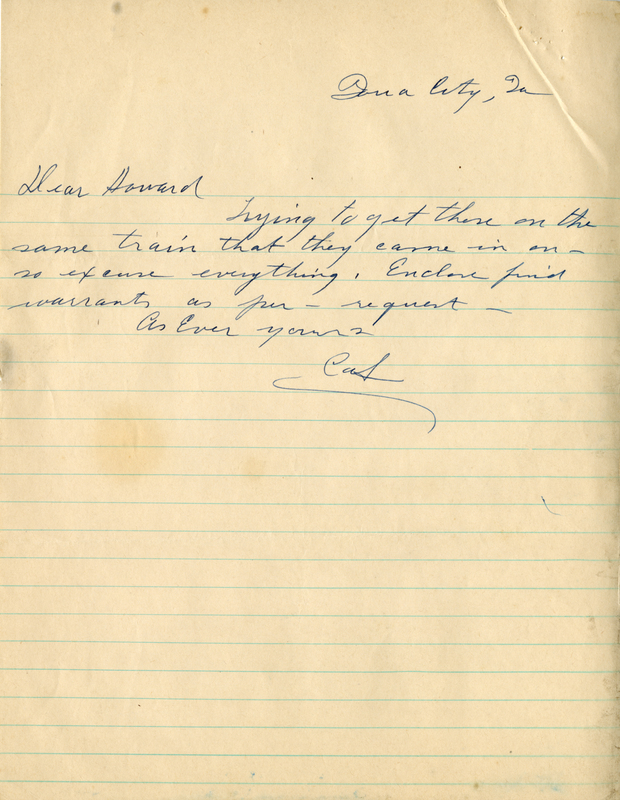 Iowa City, Ia
Dear Howard
Trying to get these on the
same train that they came in on –
so excuse everything. Enclose find
warrants as per – request –
As Ever yours